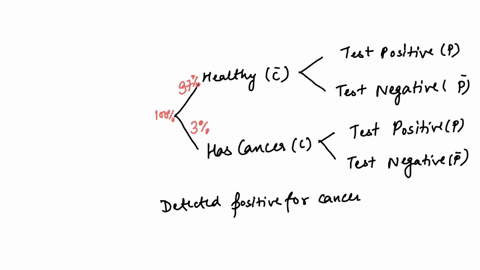 Test Positive (P)
97%
Healthy (C̄)
Test Negative ( P̄)
100%
3%
Test Positive(P)
Has Cancer (C)
Test Negative(P̄)
Detected positive for cancer